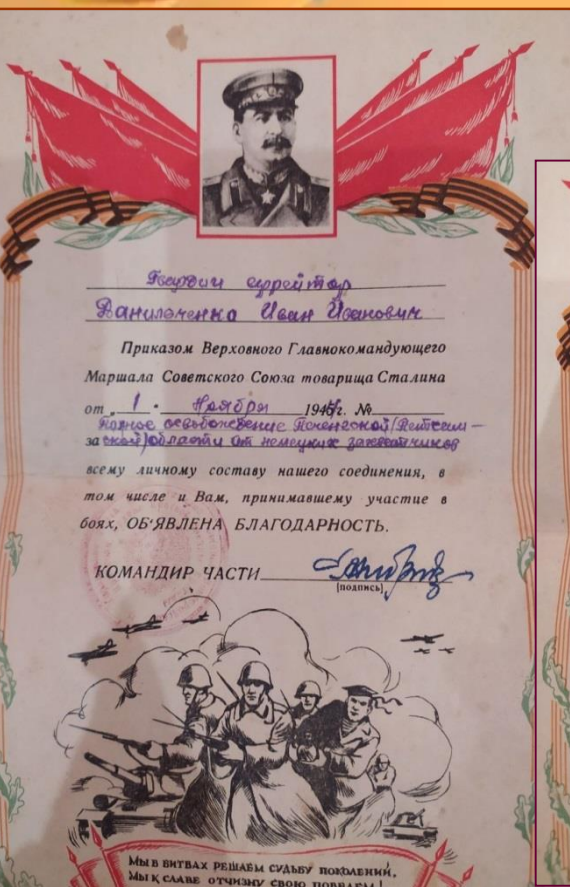 Гвардии ефрейтор
Даниленченко Иван Иванович
Приказом Верховного Главнокомандующего
Маршала Советского Союза товарища Сталина
от „ 1 " Ноября 1944г. №
полное освобождение Печенгской (Петсам-
за ской) области от немецких захватчиков
всему личному составу нашего соединения, в
том числе и Вам, принимавшему участие в
боях, ОБ'ЯВЛЕНА БЛАГОДАРНОСТЬ.
КОМАНДИР ЧАСТИ
(подпись)
МЫ В БИТВАХ РЕШАЕМ СУДЬБУ ПОКОЛЕНИЙ,
МЫ К СЛАВЕ ОТЧИЗНУ СВОЮ ПОВЕДЕМ!